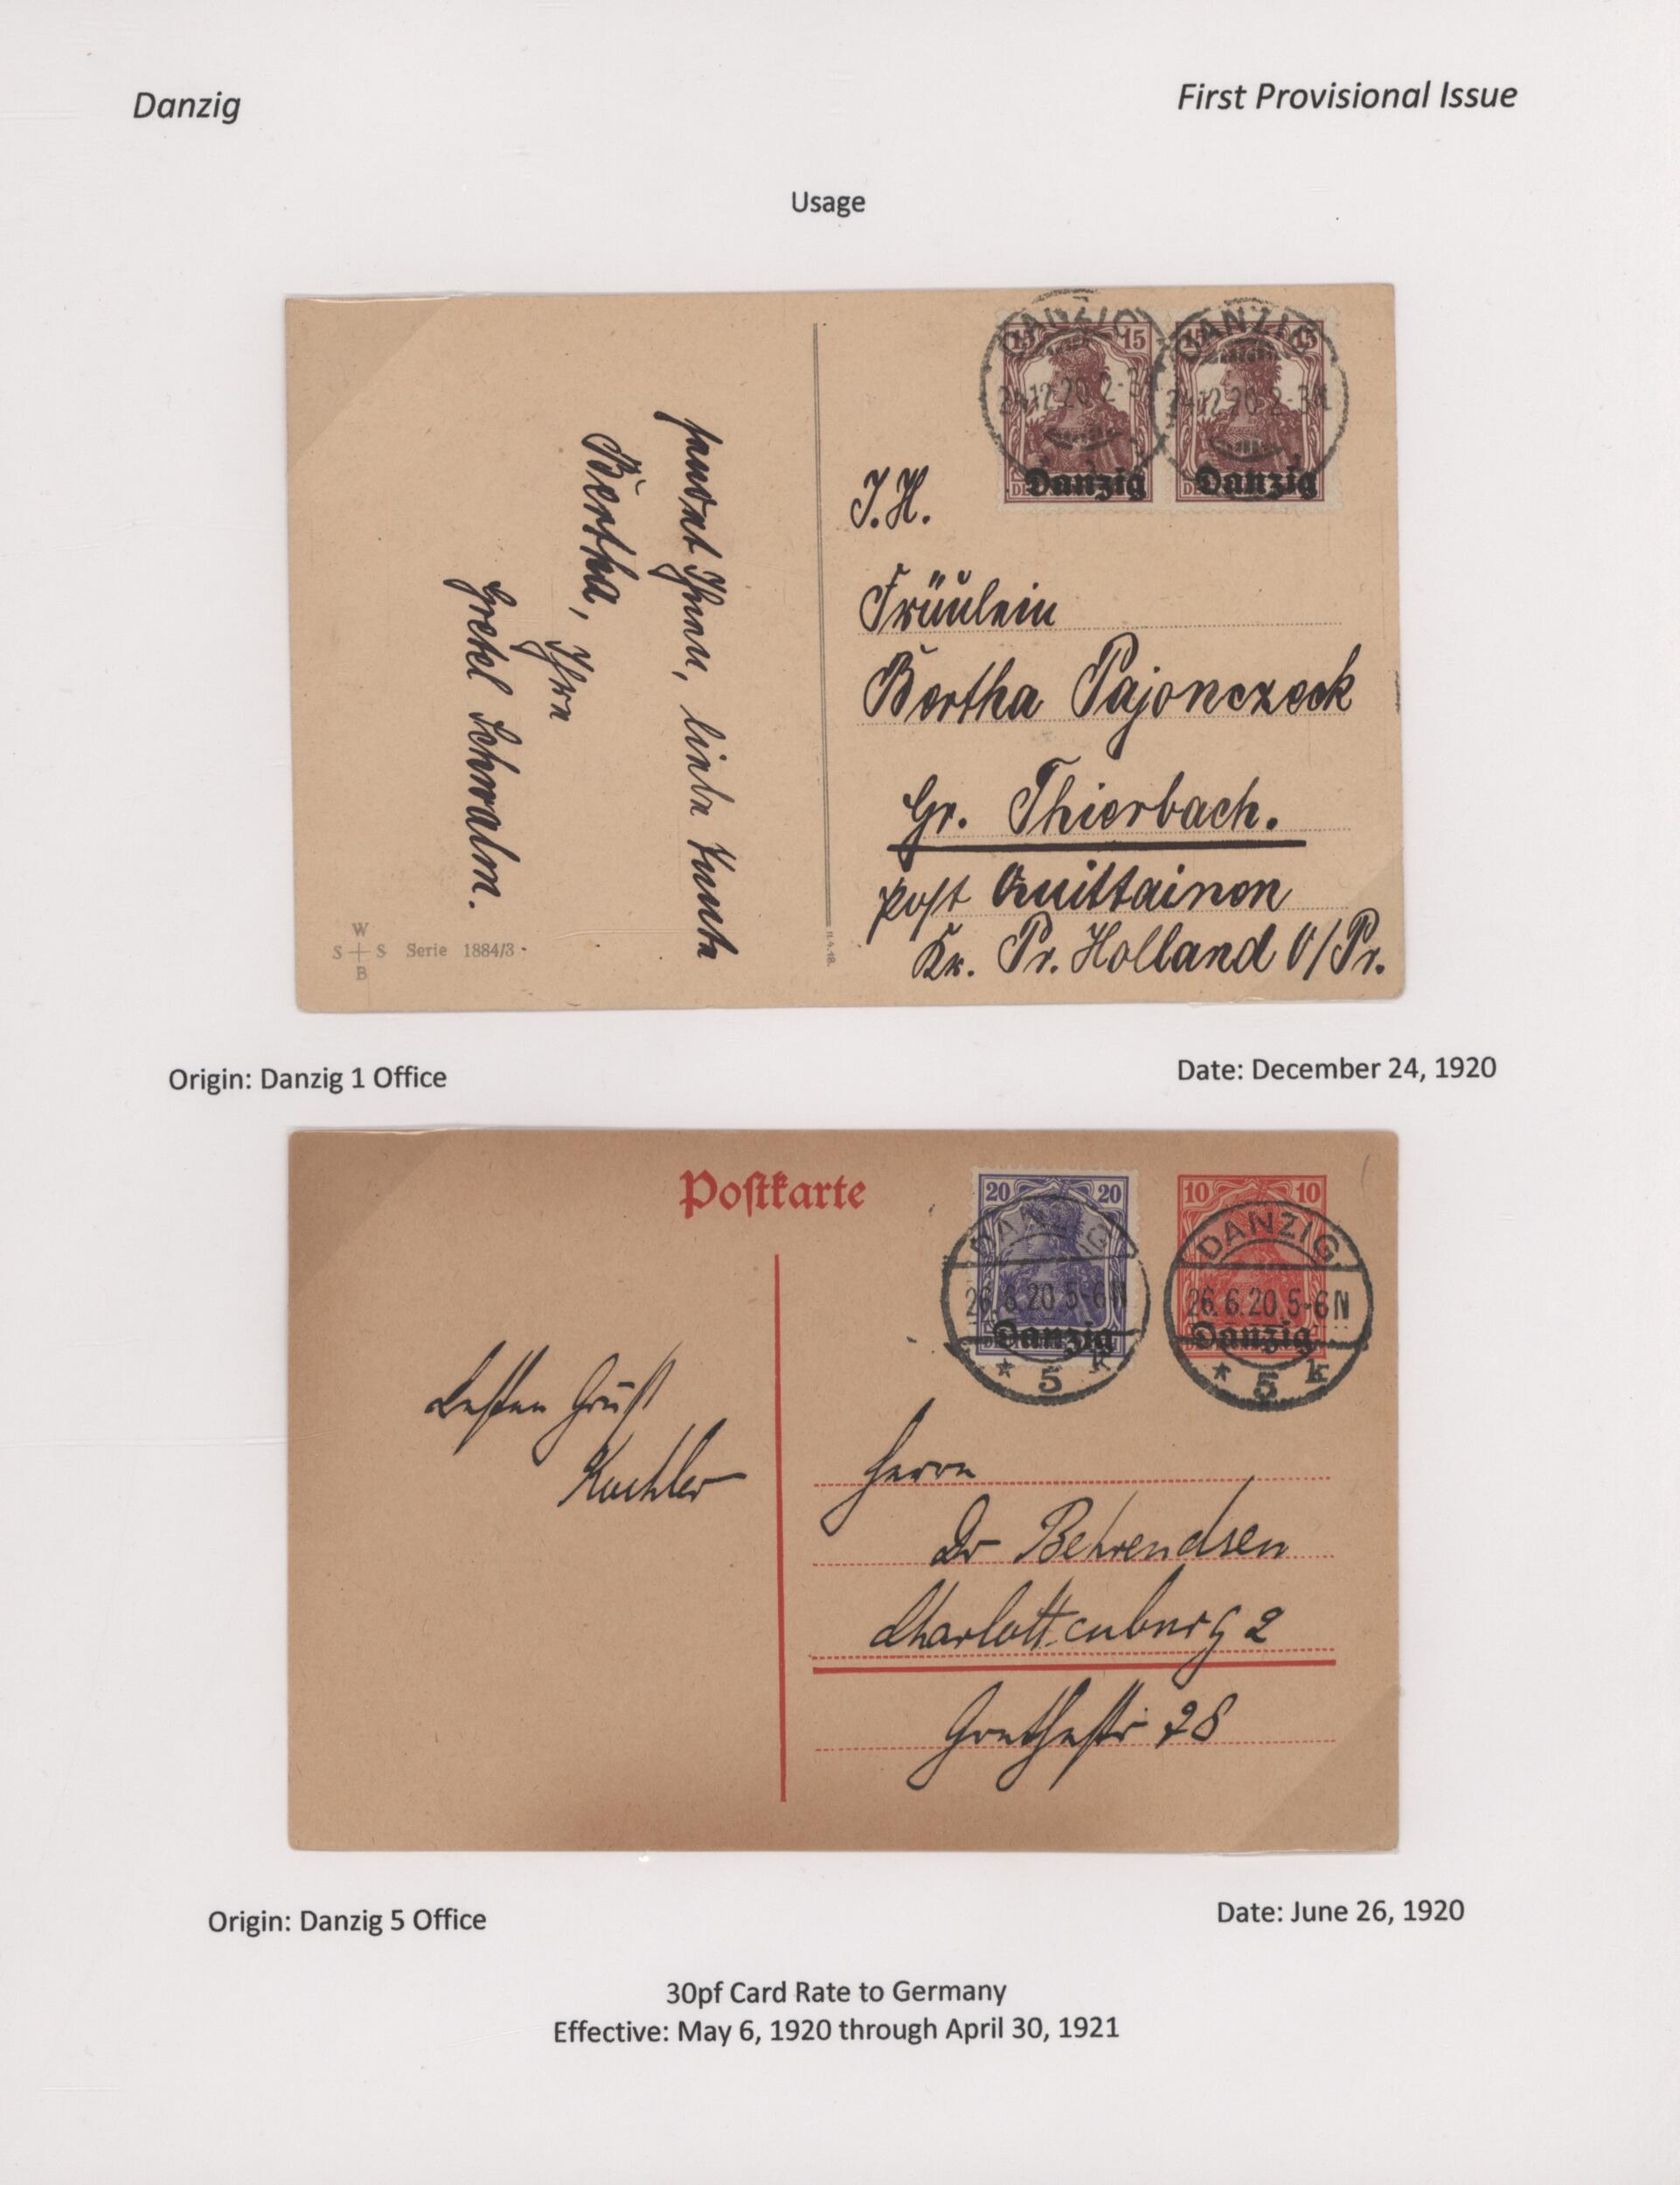 Danzig
First Provisional Issue
Usage
15 15
15 15
DANZIG
24.12.20. 2-3N.
DANZIG
24.12.20. 2-3N.
Danzig
Danzig
J.H.
Fräulein
Bertha Pajonczeck
Gr. Thierbach.
Post Quittainen
Kr. Pr. Holland O/Pr.
sendet Ihnen, liebe Tante
Bertha, Ihre
Gretel Schwalm.
W
S S
B
Serie 1884/3
11.4.18.
Origin: Danzig 1 Office
Date: December 24, 1920
Postkarte
20 20
10 10
DANZIG
26.6.20. 5-6N
* 5 k
DANZIG
26.6.20. 5-6N
* 5 k
Danzig
Danzig
Besten Gruß
Kuchler
Herrn
Dr Behrendsen
Charlottenburg 2
Goethestr 28
Origin: Danzig 5 Office
Date: June 26, 1920
30pf Card Rate to Germany
Effective: May 6, 1920 through April 30, 1921